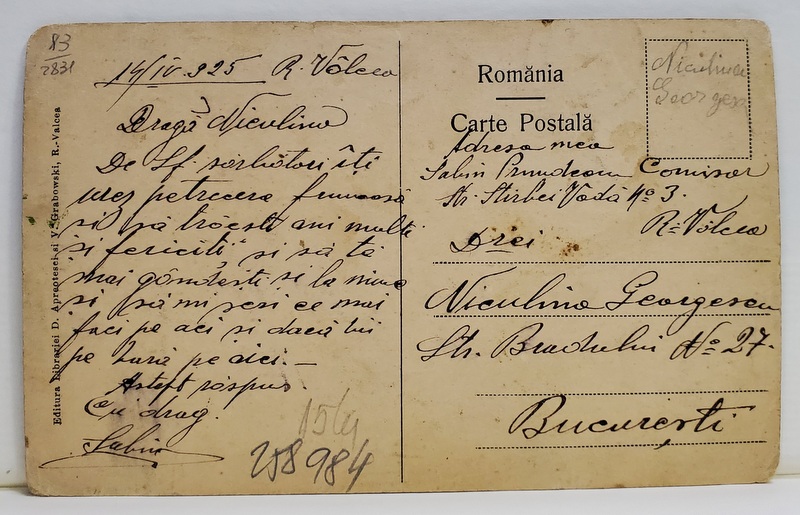 83
2831
14/IV 925 R. Vâlcea
Dragă Niculino
De Sf. sărbători îți
urez petrecere frumoasă
și să trăești ani mulți
și fericiți și să te
mai gândești și la mine
și să-mi scri ce mai
faci pe aci și dacă
pe vară pe aici. —
Aștept răspuns
Cu drag.
Sabin
Editura Librăriei D. Apreotesei și V. Grabowski, R.-Valcea
1519
258984
România
Carte Postală
Niculina
Georgescu
Adresa mea
Sabin Comisar
Str. Stirbei Vodă No 3.
R. Vâlcea
Niculina Georgescu
Str. Bradului No 27.
București